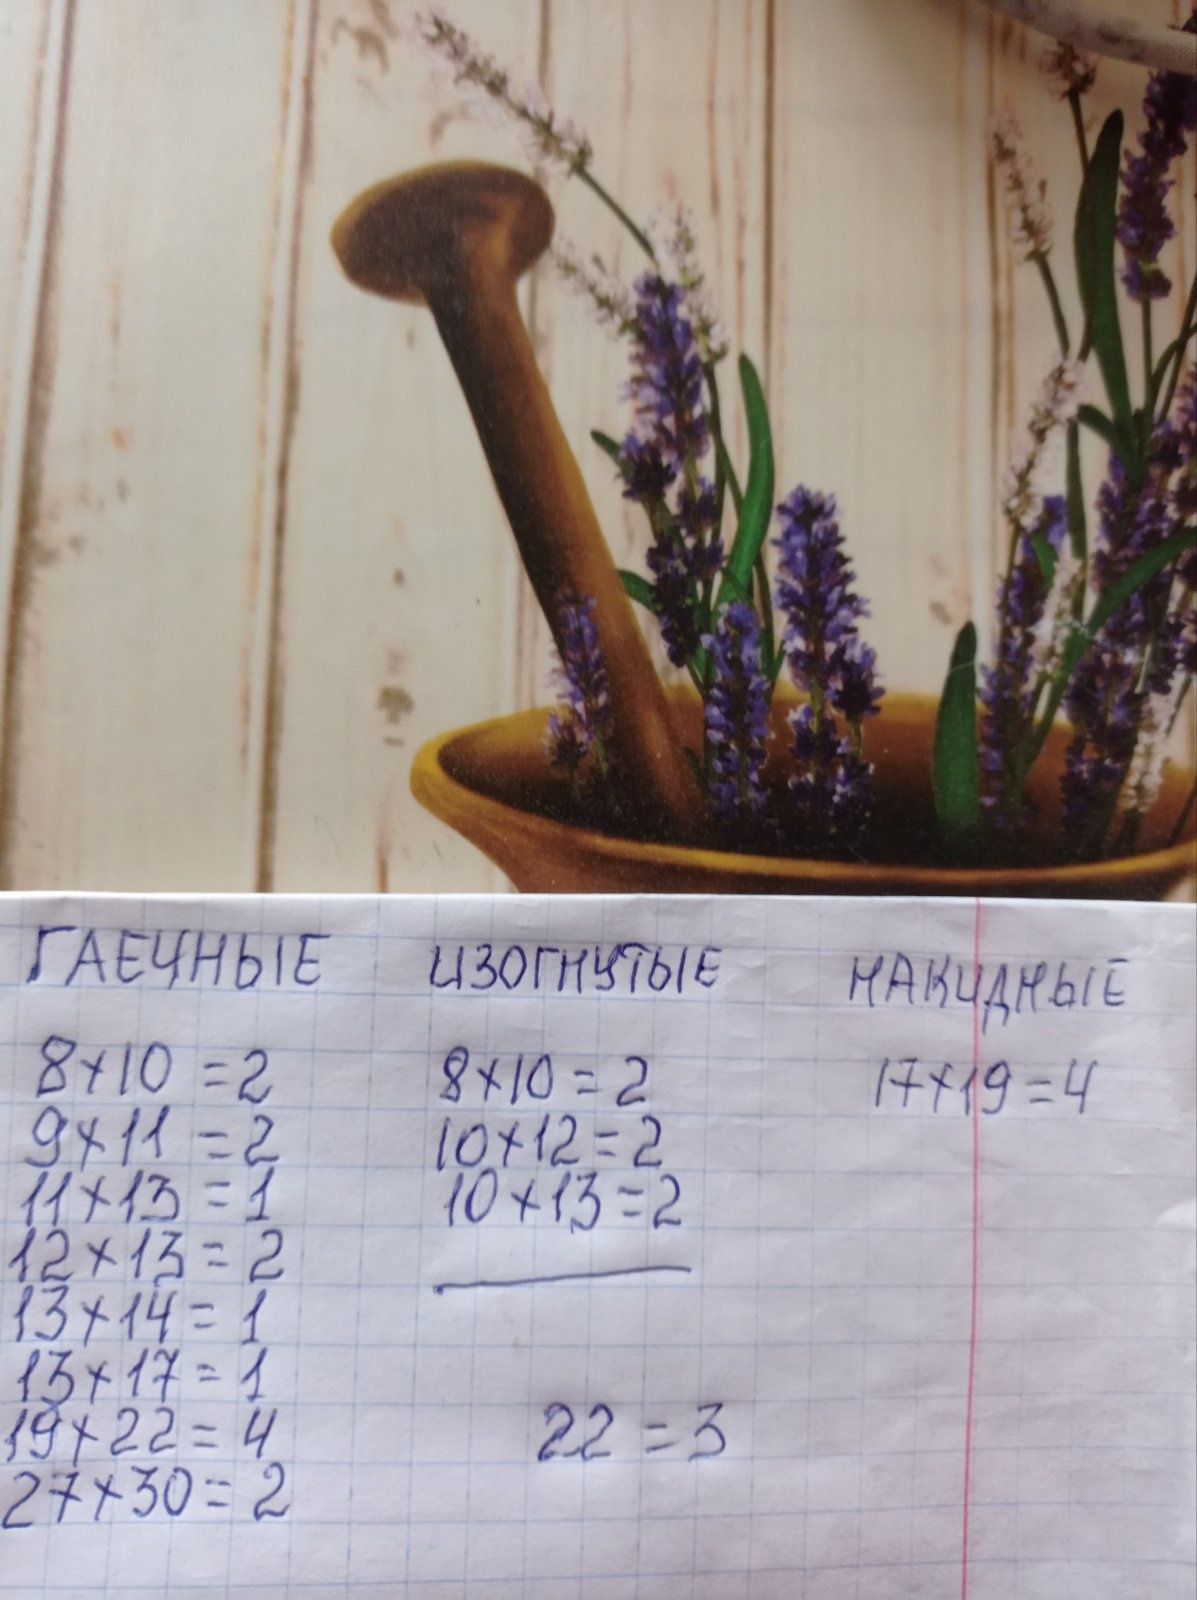 ГАЕЧНЫЕ
8х10 = 2
9х11 = 2
11х13 = 1
12х13 = 2
13х14 = 1
13х17 = 1
19х22 = 4
27х30 = 2
ИЗОГНУТЫЕ
8х10 = 2
10х12 = 2
10х13 = 2
22 = 3
НАКИДНЫЕ
17х19 = 4